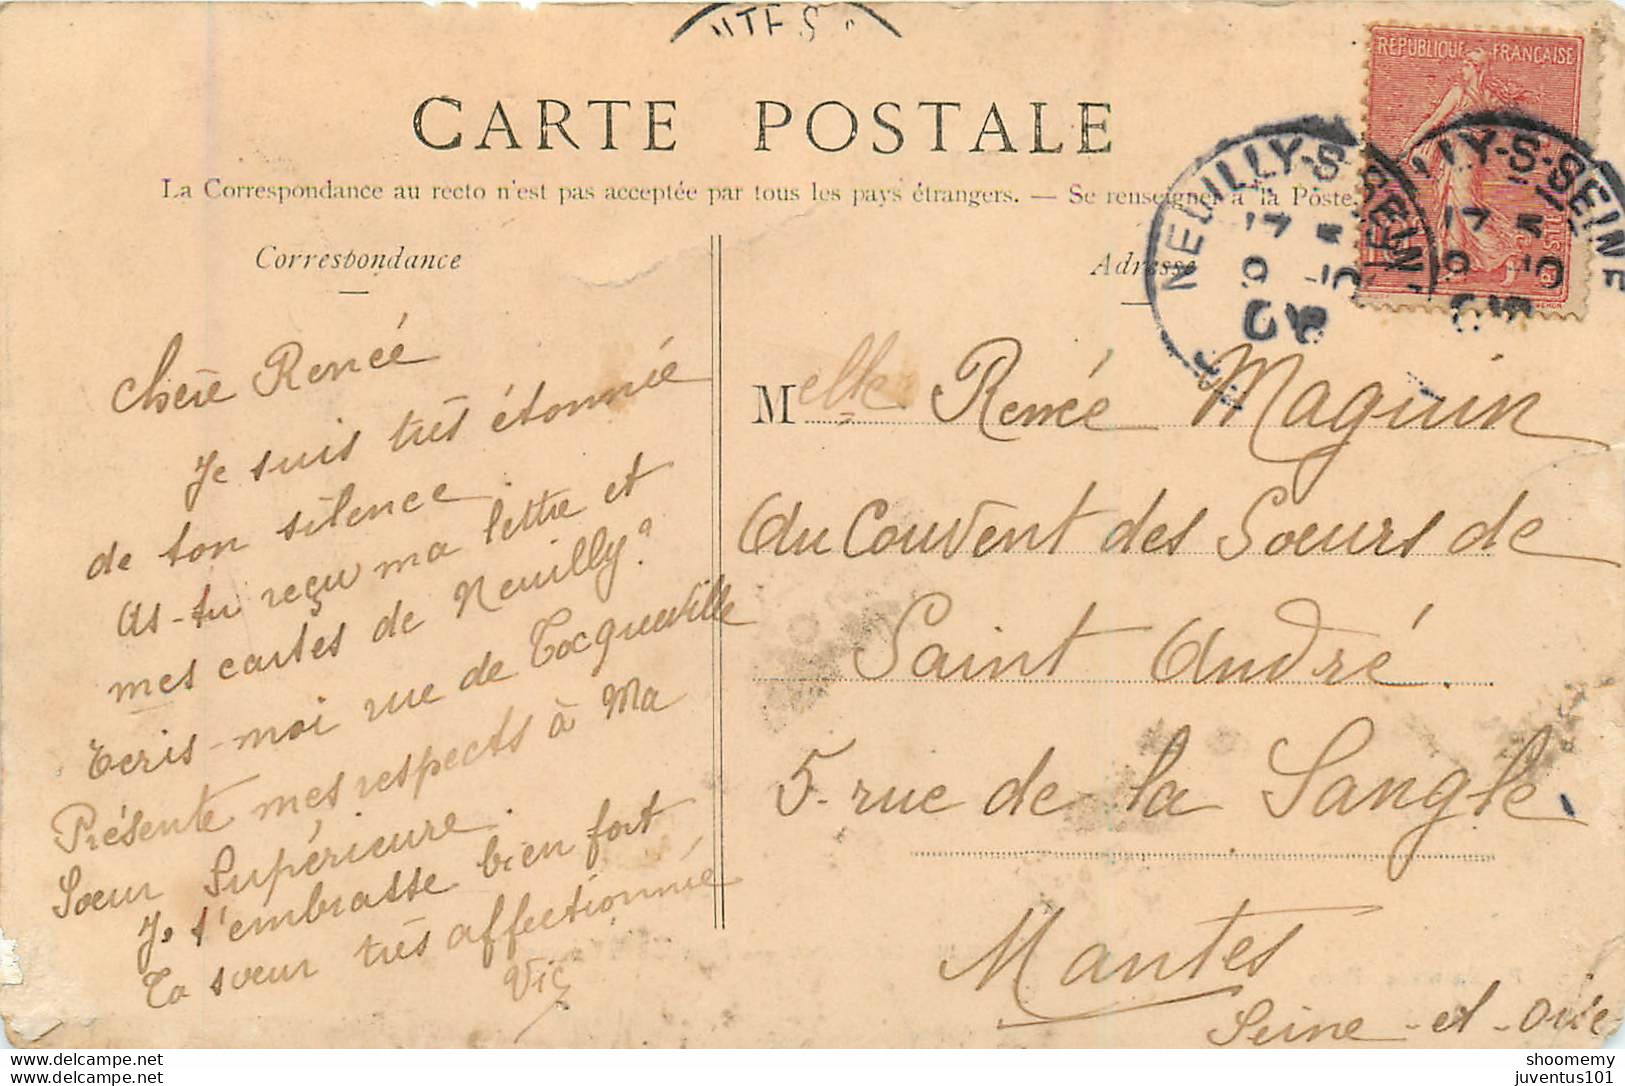 NTES
CARTE POSTALE
La Correspondance au recto n'est pas acceptée par tous les pays étrangers. — Se renseigner à la Poste.
REPUBLIQUE FRANÇAISE
POSTE
NEUILLY-S-SEINE
NEUILLY-S-SEINE
Correspondance
Chère Renée
Je suis très étonnée
de ton silence.
As-tu reçu ma lettre et
mes cartes de Neuilly?
Ecris-moi rue de Tocqueville
Présente mes respects à Ma
Sœur Supérieure.
Je t'embrasse bien fort
Ta sœur très affectionnée
Vic
Adresse
Melle Renée Maguin
Au Couvent des Sœurs de
Saint André.
5. rue de la Sangle
Mantes
Seine-et-Oise
www.delcampe.net
www.delcampe.net
shoomemy
juventus101